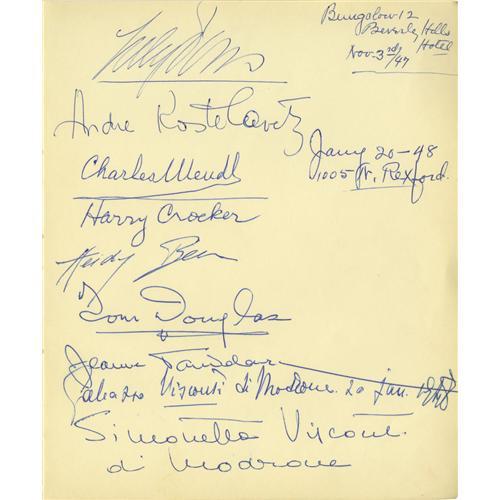 Bungalow-12
Beverly Hills
Hotel
Nov-3rd/47
Andre Kostelanetz
Jany 20-48
1005 N. Rexford.
Charles Mendl
Harry Crocker
Tom Douglas
Galeazzo Visconti di Modrone 20 Jan. 1948
Simonetta Visconti
di Modrone